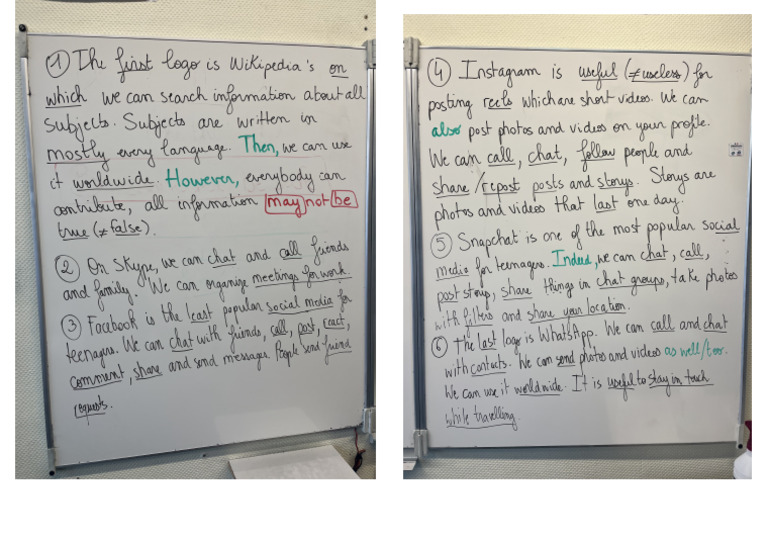 1) The first logo is Wikipedia's on
which we can search information about all
subjects. Subjects are written in
mostly every language. Then, we can use
it worldwide. However, everybody can
contribute, all information may not be
true (≠ false).
2 On Skype, we can chat and call friends
and family. We can organize meetings for work
3 Facebook is the last popular social media for
teenagers. We can chat with friends, call, post, react,
comment, share and send messages. People send friend
requests.
4 Instagram is useful (≠ useless) for
posting reels which are short videos. We can
also post photos and videos on your profile.
We can call, chat, follow people and
share / repost posts and storys. Storys are
photos and videos that last one day.
5 Snapchat is one of the most popular social
media for teenagers. Indeed, we can chat, call,
post story, share things in chat groups, take photos
with filters and share your location.
6 The last logo is WhatsApp. We can call and chat
with contacts. We can send photo and videos as well/too.
We can use it worldwide. It is useful to stay in touch
while travelling.